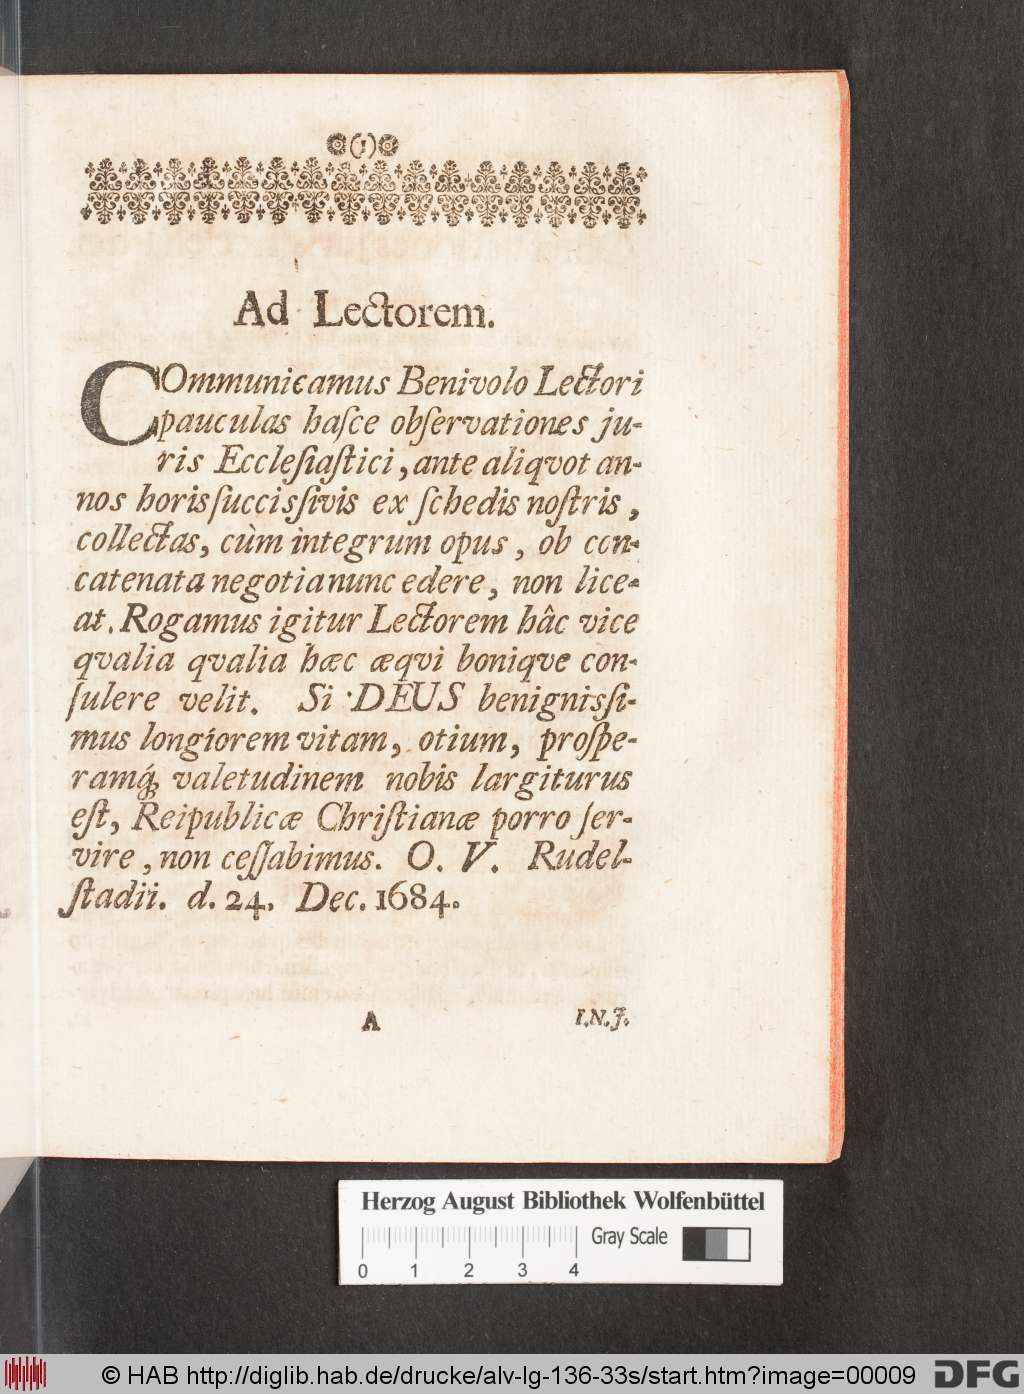 (1)
Ad Lectorem.
COmmunicamus Benivolo Lectori
pauculas haſce obſervationes ju-
ris Eccleſiaſtici, ante aliqvot an-
nos horis ſuccisſivis ex ſchedis noſtris,
collectas, cùm integrum opus, ob con-
catenata negotia nunc edere, non lice-
at. Rogamus igitur Lectorem hâc vice
qvalia qvalia hæc æqvi boniqve con-
ſulere velit. Si DEUS benignisſi-
mus longiorem vitam, otium, proſpe-
ramq́; valetudinem nobis largiturus
eſt, Reipublicæ Chriſtianæ porro ſer-
vire, non ceſſabimus. O. V. Rudel-
ſtadii. d. 24. Dec. 1684.
A I.N.J.
Herzog August Bibliothek Wolfenbüttel
Gray Scale
0 1 2 3 4
© HAB http://diglib.hab.de/drucke/alv-lg-136-33s/start.htm?image=00009 DFG